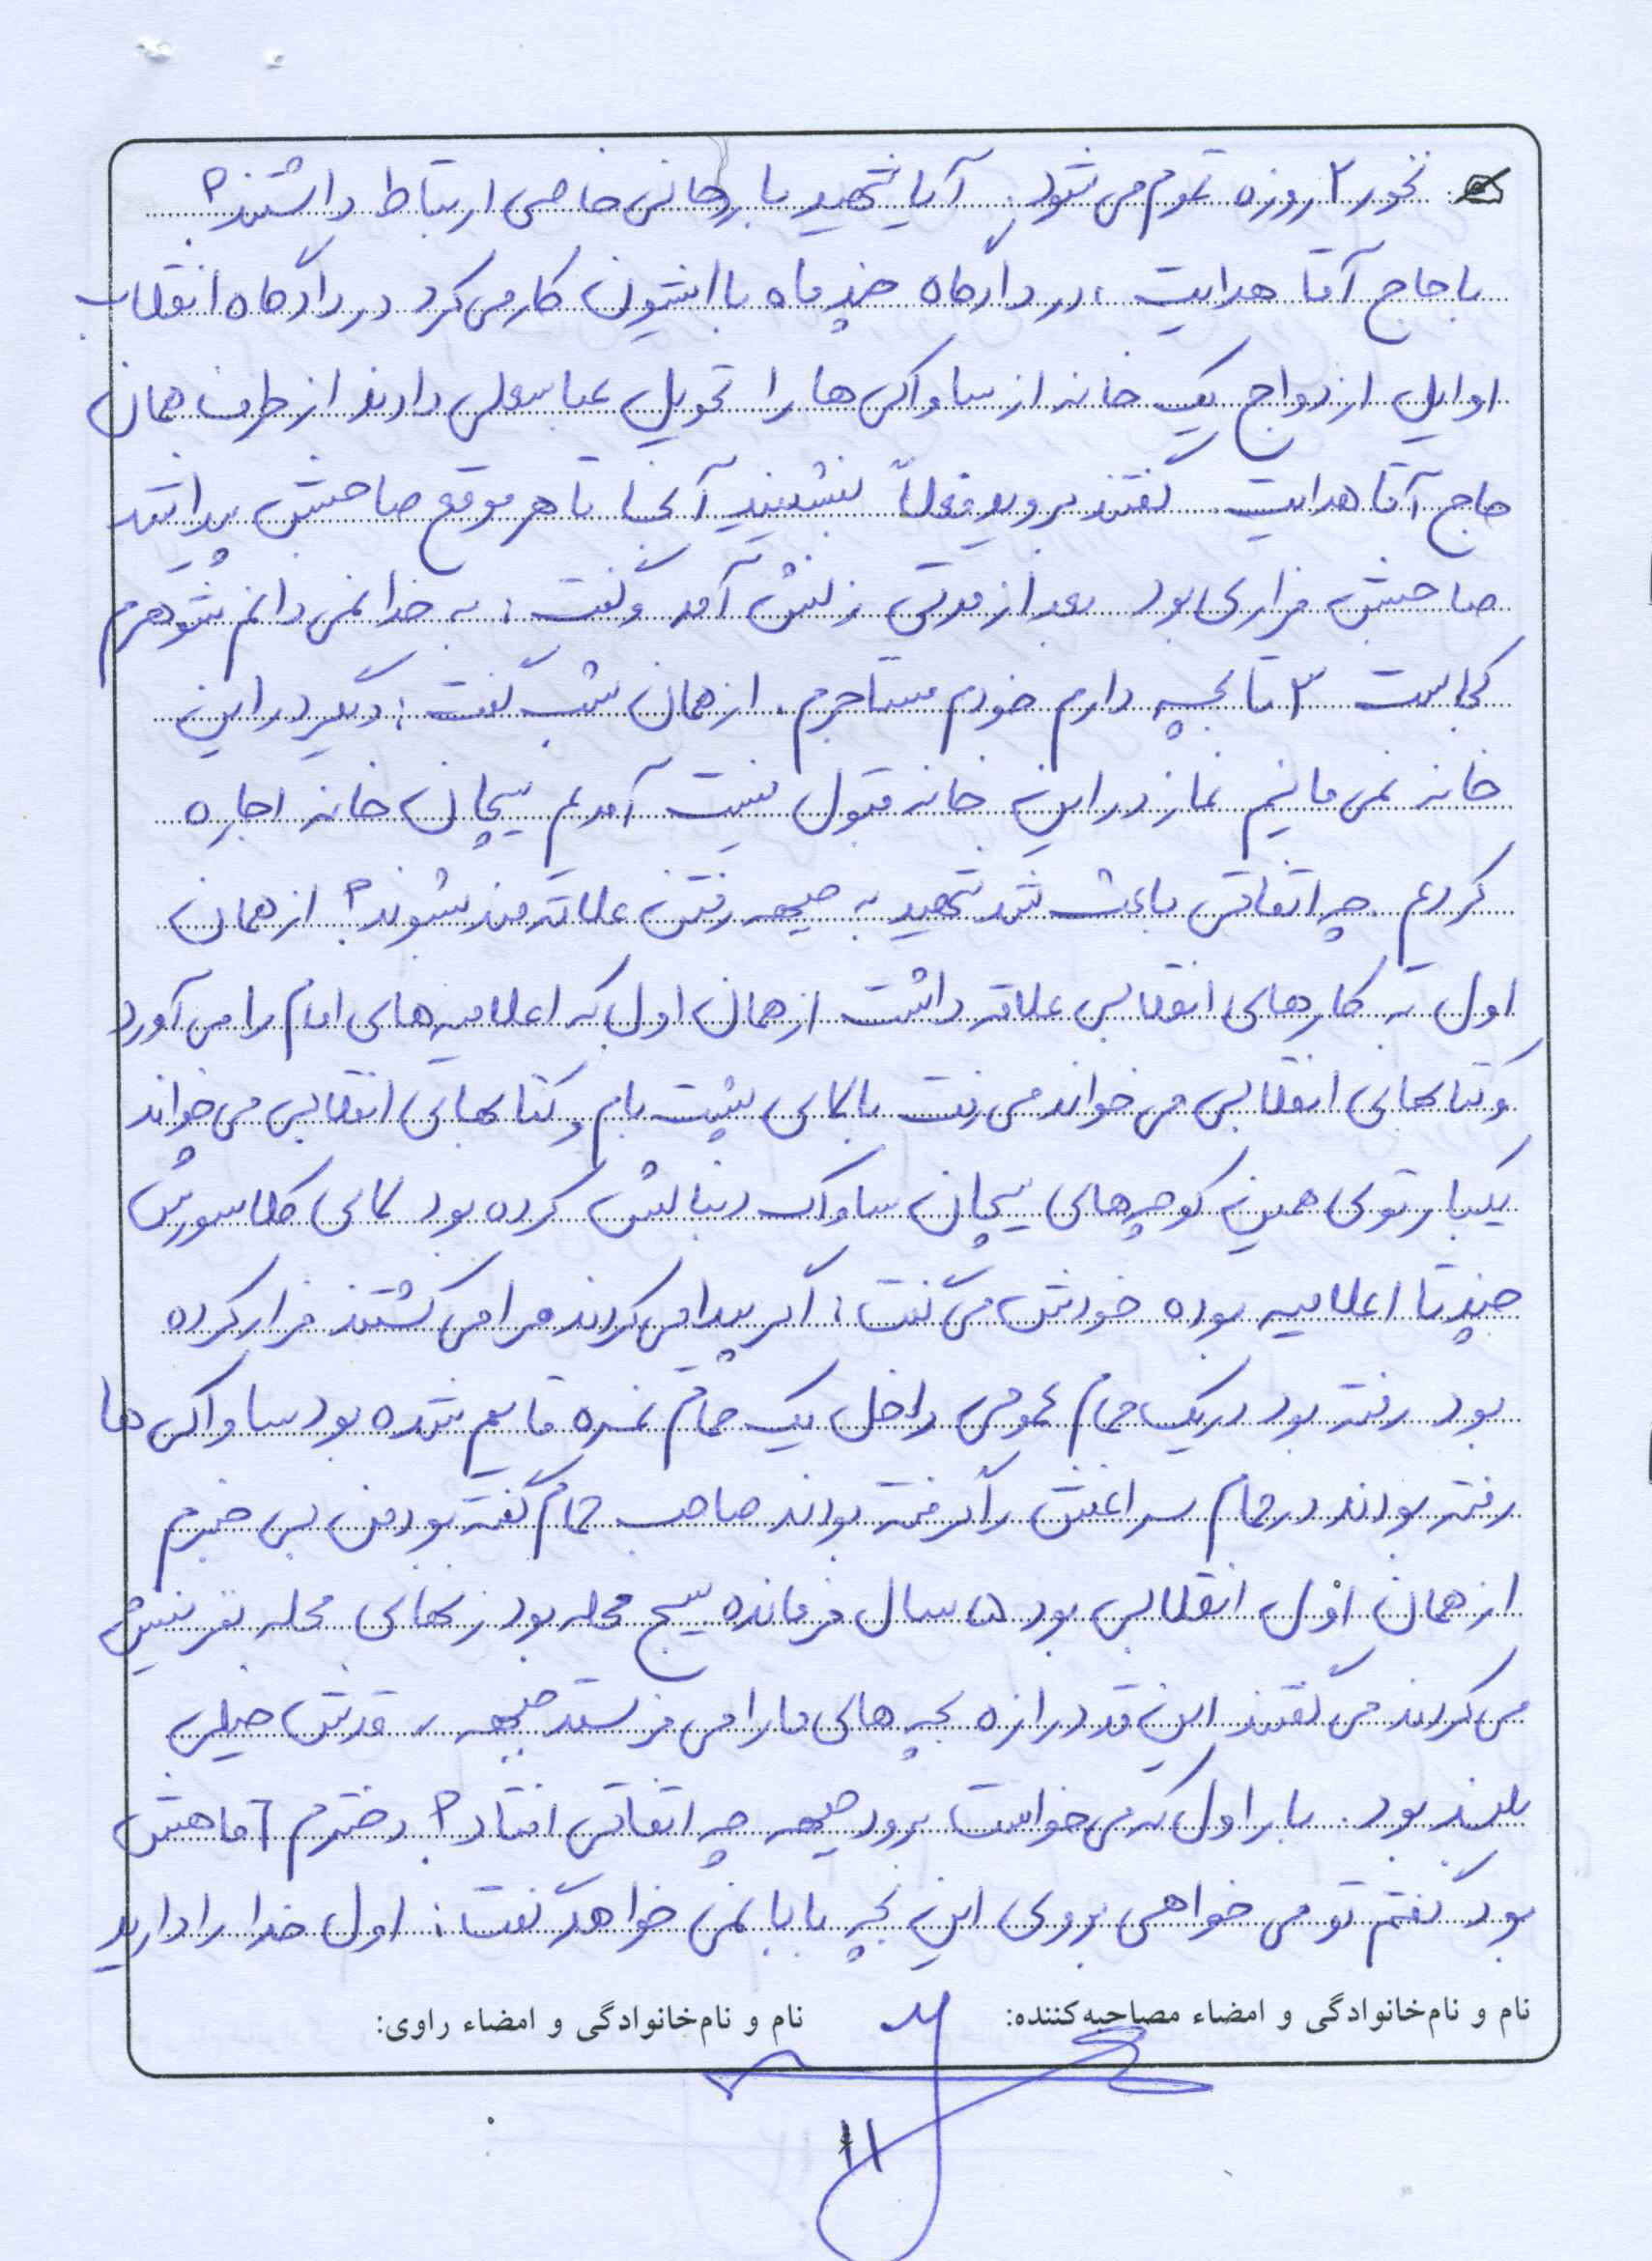 نخور ۲ روزه تموم می شود. آیا شهید با روحانی خاصی ارتباط داشتند؟
با حاج آقا هدایت، در دادگاه چند ماه با ایشون کار می کرد در دادگاه انقلاب
اوایل ازدواج یک خانه از ساواکی ها را تحویل عباسعلی دادند از طرف همان
حاج آقا هدایت گفتند بروید فعلاً بنشینید آنجا تا هر موقع صاحبش پیدا شد
صاحبش فراری بود بعد از مدتی زنش آمد و گفت: به خدا نمی دانم شوهرم
کجاست ۳ تا بچه دارم خودم مستاجرم. از همان شب گفت: دیگر در این
خانه نمی مانیم نماز در این خانه قبول نیست آمدیم سیچان خانه اجاره
کردیم. چه اتفاقی باعث شد شهید به جبهه رفتن علاقه مند بشوند؟ از همان
اول به کارهای انقلابی علاقه داشت از همان اول که اعلامیه های امام را می آورد
و کتابهای انقلابی می خواند می رفت بالای پشت بام و کتابهای انقلابی می خواند
یکبار توی همین کوچه های سیچان ساواک دنبالش کرده بود لای کلاسورش
چند تا اعلامیه بوده خودش می گفت: اگر پیدا می کردند مرا می کشتند فرار کرده
بود رفته بود در یک حمام عمومی داخل یک حمام نمره قایم شده بود ساواکی ها
رفته بودند در حمام سراغش را گرفته بودند صاحب حمام گفته بود من بی خبرم
از همان اول انقلابی بود ۵ سال فرمانده بسیج محله بود زنهای محله نفرینش
می کردند می گفتند این قد درازه بچه های ما را می فرستد جبهه، قدش خیلی
بلند بود. بار اول که می خواست برود جبهه چه اتفاقی افتاد؟ دخترم ۶ ماهش
بود گفتم تو می خواهی بروی این بچه بابا نمی خواهد گفت: اول خدا را دارید
نام و نام‌خانوادگی و امضاء مصاحبه‌کننده: نام و نام‌خانوادگی و امضاء راوی:
۱۱